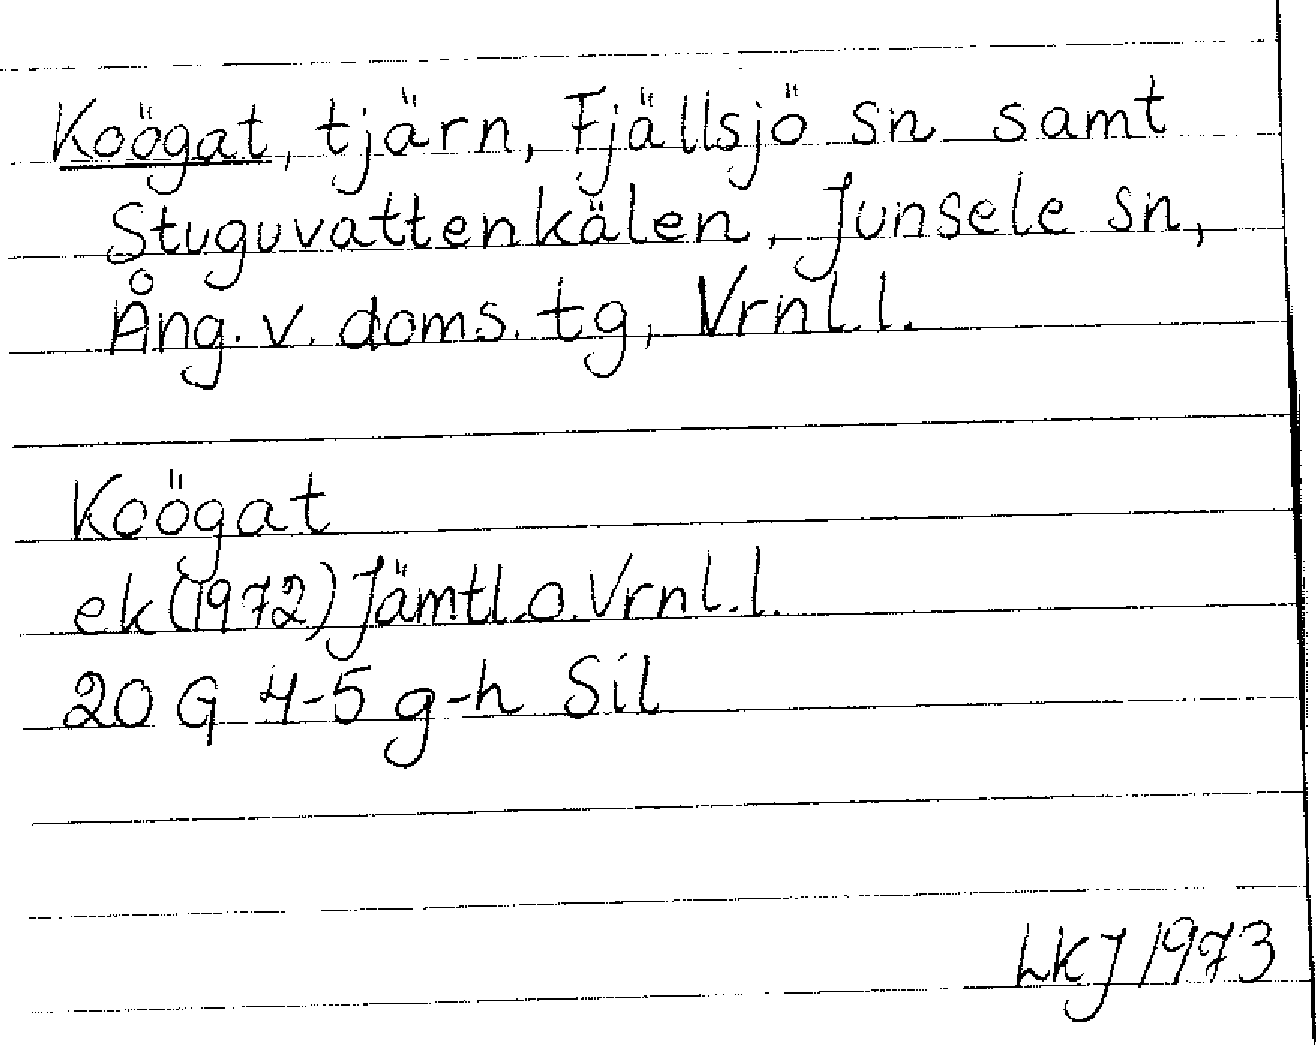 Koögat, tjärn, Fjällsjö sn samt
Stuguvattenkälen, Junsele sn,
Ång. v. doms. tg, Vrnl.l.
Koögat
ek (1972) Jämtl.o.Vrnl.l.
20 G 4-5 g-h Sil
LKJ 1973